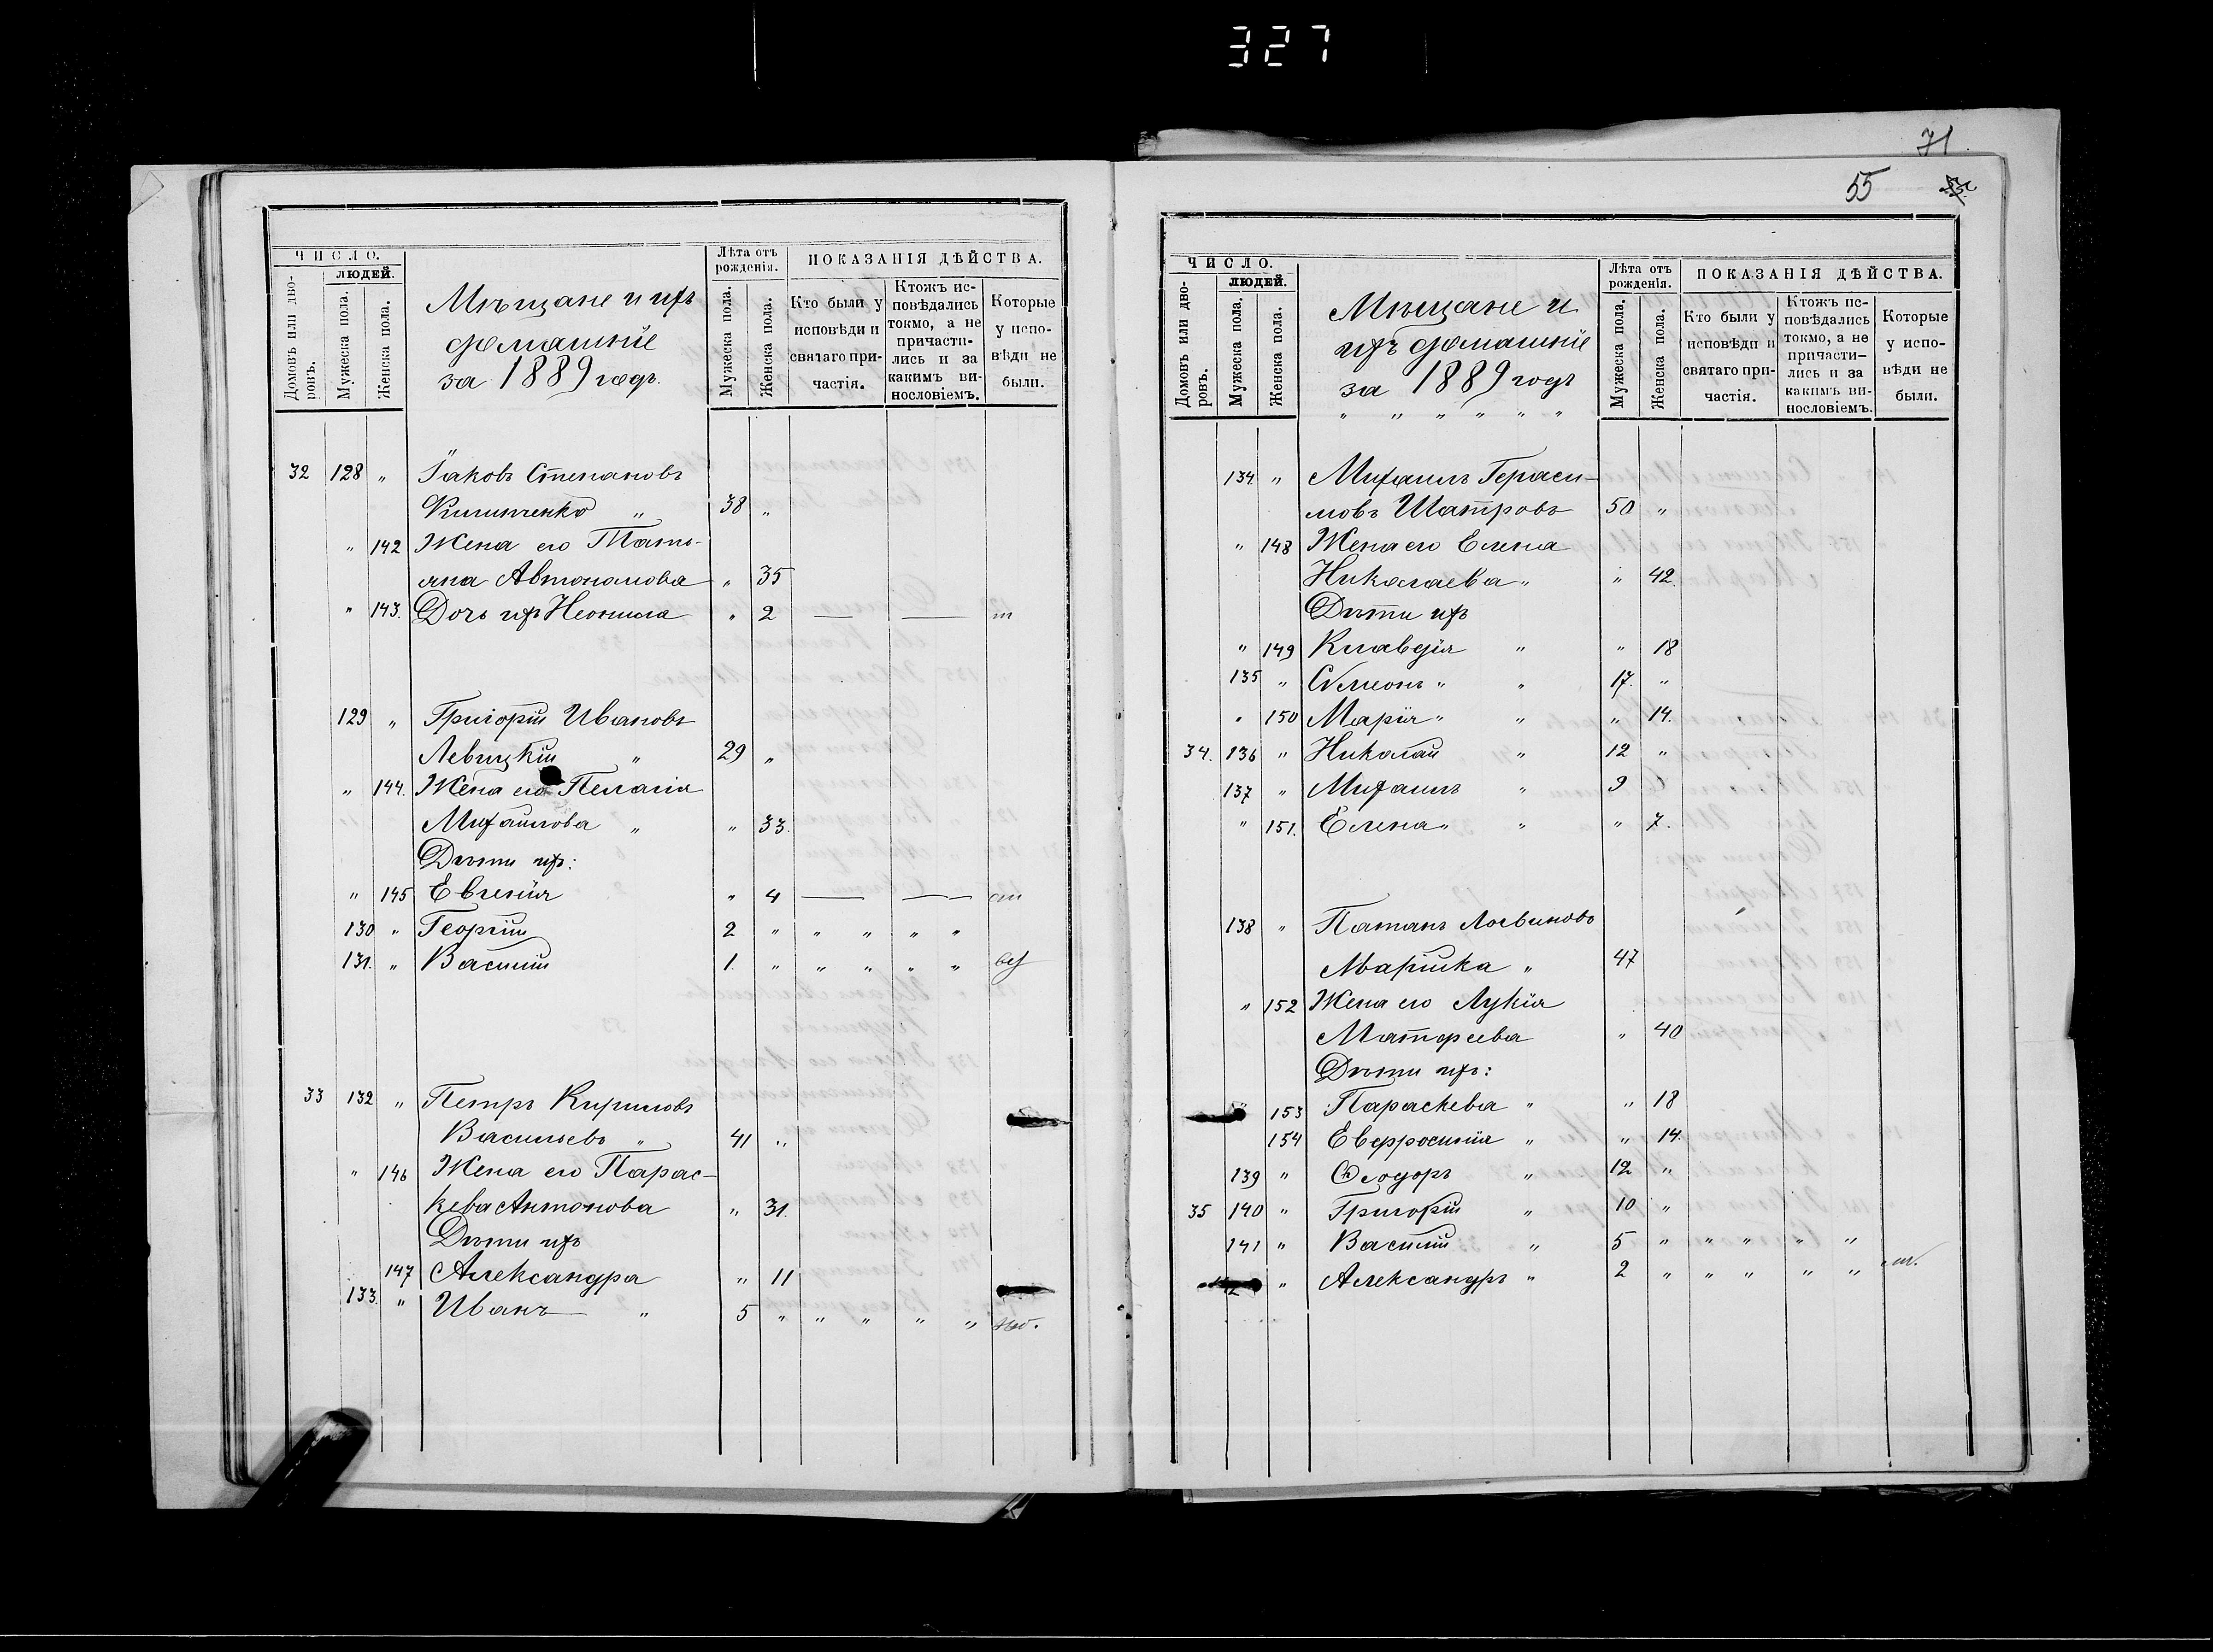 327
71
55
ЧИСЛО.
ЛЮДЕЙ.
Домовъ или дво-
ровъ.
Мужеска пола.
Женска пола.
Мѣщане и ихъ
домашніе
за 1889 годъ.
Лѣта отъ
рожденія.
Мужеска пола.
Женска пола.
ПОКАЗАНІЯ ДѢЙСТВА.
Кто были у
исповѣди и
святаго при-
частія.
Ктожъ ис-
повѣдались
токмо, а не
причасти-
лись и за
какимъ ви-
нословіемъ.
Которые
у испо-
вѣди не
были.
32 128 „ Іаковъ Степановъ
„ 38 „
„ 142 Жена его Тать-
яна Автономова „ 35
„ 143. Дочь ихъ Неонила „ 2 — — m
129 „ Григорій Ивановъ
Левицкій „ 29 „
„ 144. Жена его Пелагія
Михаилова „ „ 33.
Дѣти ихъ:
„ 145 Евгенія „ 4 — —
130 „ Георгій 2 „ „ „ „ „
131. „ Василій 1. „ „ „ „ „
33 132 „ Петръ Кириловъ
Васильевъ „ 41 „
„ 146 Жена его Парас-
кева Антонова „ 31.
Дѣти ихъ
147 Александра „ 11
133. „ Иванъ „ 5 „ „ „ „ „
ЧИСЛО.
ЛЮДЕЙ.
Домовъ или дво-
ровъ.
Мужеска пола.
Женска пола.
Мѣщане и
ихъ домашніе
за 1889 годъ
„ „ „ „ „ „
Лѣта отъ
рожденія.
Мужеска пола.
Женска пола.
ПОКАЗАНІЯ ДѢЙСТВА.
Кто были у
исповѣди и
святаго при-
частія.
Ктожъ ис-
повѣдались
токмо, а не
причасти-
лись и за
какимъ ви-
нословіемъ.
Которые
у испо-
вѣди не
были.
134 „ Михаилъ Гераси-
мовъ Шатровъ 50 „
„ 148 Жена его Елена
Николаева „ „ 42.
Дѣти ихъ
„ 149 Клавдія „ „ 18
135 „ Сѵмеонъ „ „ 17. „
„ 150 Марія „ „ „ 14.
34. 136 „ Николай „ 12 „
137 „ Михаилъ „ 9
„ 151. Елена „ „ „ 7.
138 „ Логвиновъ
„ 47
„ 152 Жена его Лукія
Матфеева „ 40
Дѣти ихъ:
„ 153 Параскева „ „ 18
154 Евфросинія „ „ 14.
139 „ Ѳеодоръ „ 12 „
35 140 „ Григорій „ 10 „
141 „ Василій „ 5 „ „ „ „ „
„ Александръ „ 2 „ „ „ „ „ m.